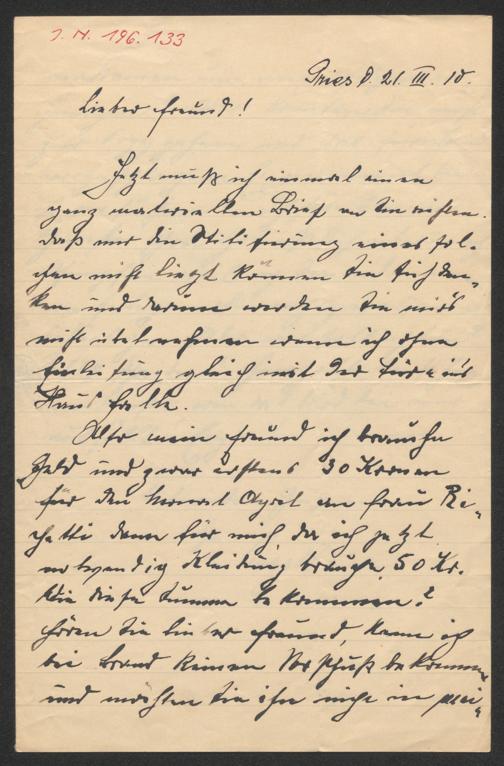 J. N. 196.133
Gries d. 21. III. 10.
Lieber Freund!
Jetzt muß ich einmal einen
ganz materiellen Brief an Sie richten.
daß mir die Stilisierung eines sol-
chen nicht liegt können Sie sich den-
ken und darum werden Sie mir's
nicht übel nehmen wenn ich ohne
Einleitung gleich mit der Türe ins
Haus falle.
Also mein Freund ich brauche
Geld und zwar erstens 30 Kronen
für den Monat April an Frau Ri-
chetti dann für mich da ich jetzt
notwendig Kleidung brauche 50 Kr.
Wie diese Summe bekommen?
Hören Sie lieber Freund, kann ich
bei Brand keinen Vorschuß bekommen
und möchten Sie ihn nicht in mei-